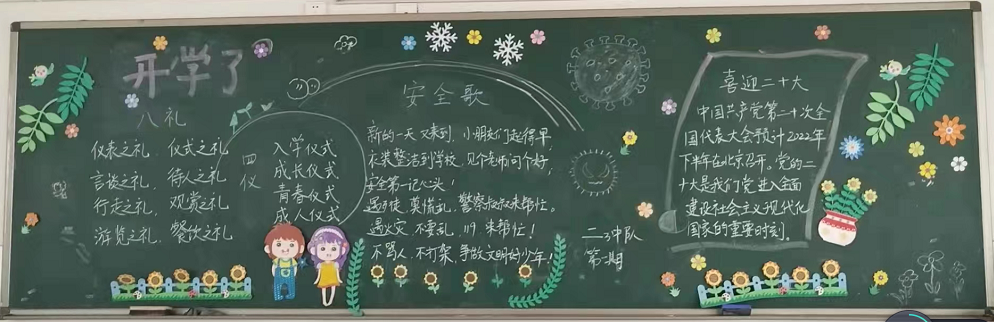 开学了
八礼
仪表之礼、仪式之礼
言谈之礼、待人之礼
行走之礼、观赏之礼
游览之礼、餐饮之礼
四仪
入学仪式
成长仪式
青春仪式
成人仪式
安全歌
新的一天又来到,小朋友们起得早,
衣装整洁到学校,见个老师问个好,
安全第一记心头!
遇歹徒,莫慌乱,警察叔叔来帮忙。
遇火灾,不要乱,119来帮忙!
不骂人,不打架,争做文明好少年!
二3中队
第一期
喜迎二十大
中国共产党第二十次全
国代表大会预计2022年
下半年在北京召开。党的二
十大是我们党进入全面
建设社会主义现代化
国家的重要时刻。